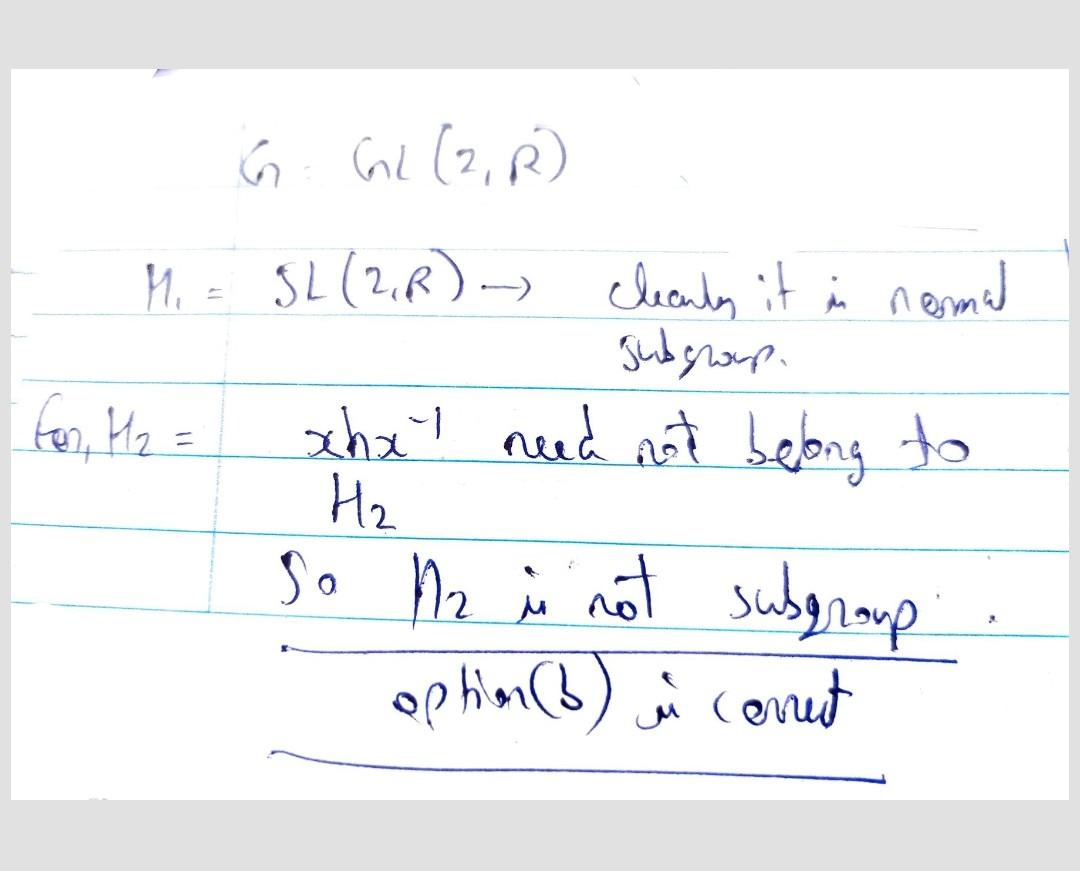 G = GL(2, R)
H₁ = SL(2,R) → clearly it is normal
subgroup.
For, H₂ = xhx⁻¹ need not belong to
H₂
So H₂ is not subgroup.
option(b) is correct